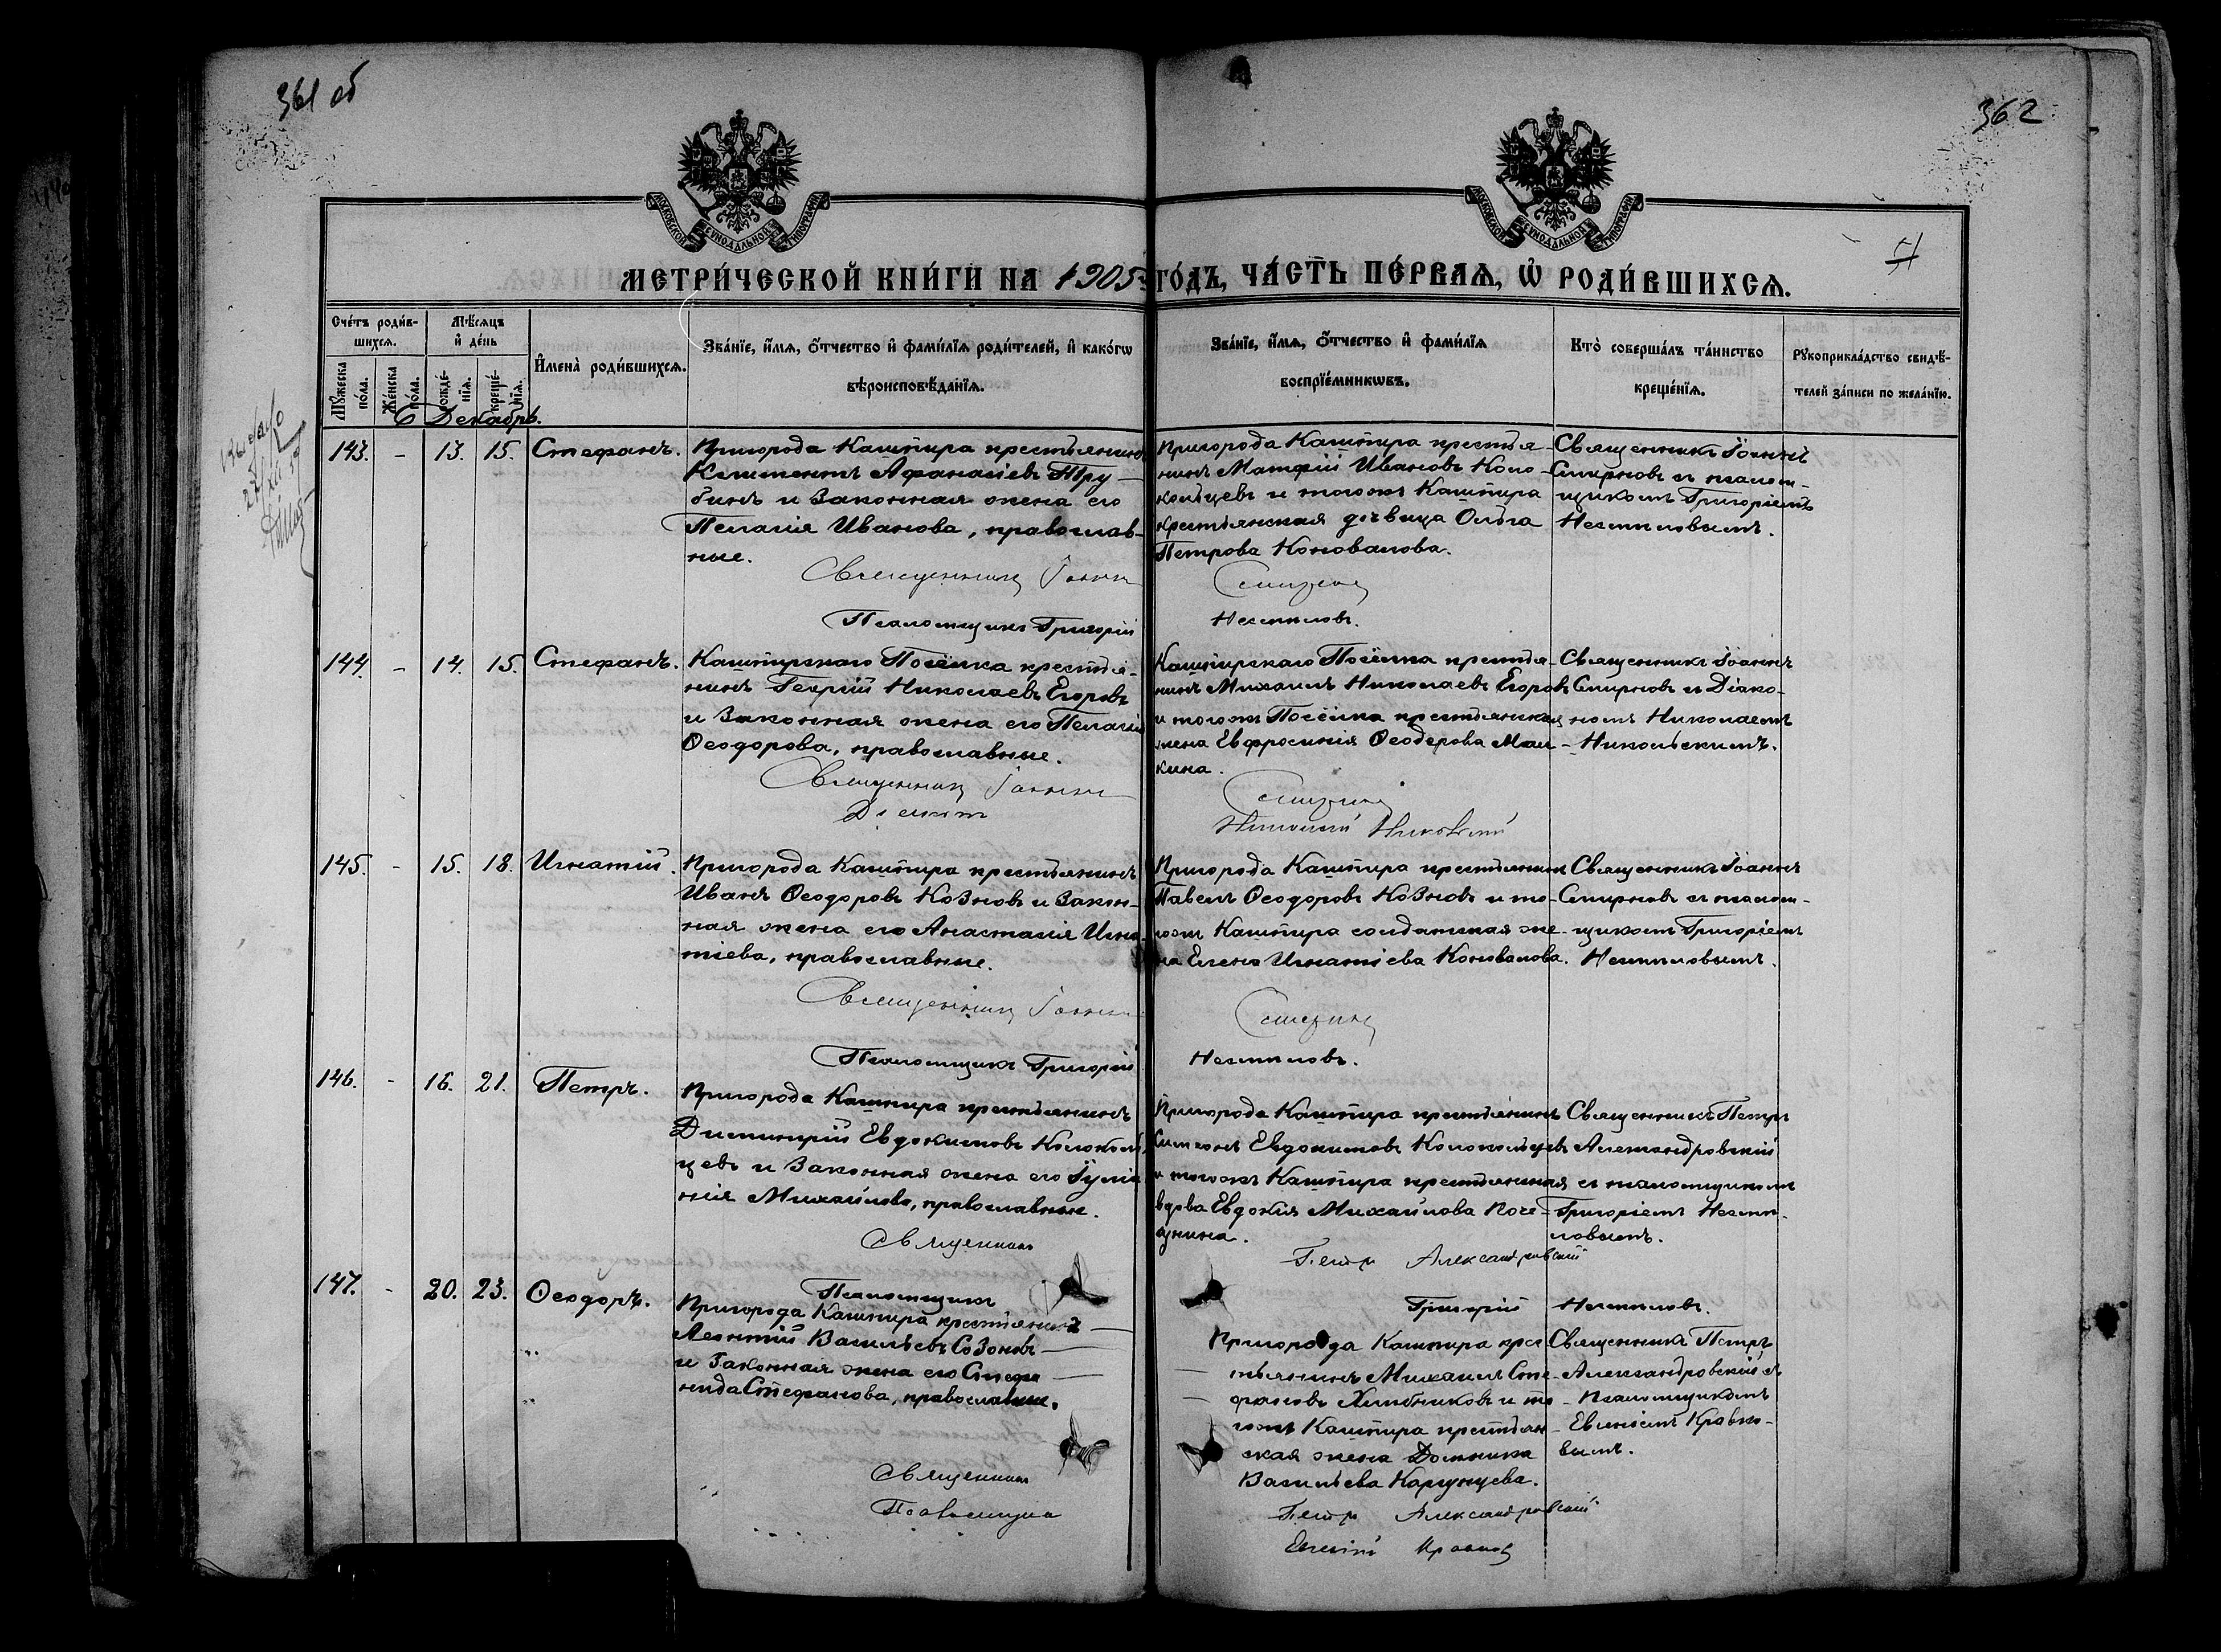 361 об
362
МОСКОВСКОЙ СѴНОДАЛЬНОЙ ТИПОГРАФІИ
МОСКОВСКОЙ СѴНОДАЛЬНОЙ ТИПОГРАФІИ
МЕТРИ́ЧЕСКОЙ КНИ́ГИ НА 1905 ГО́ДЪ, ЧА́СТЬ ПЕ́РВАѦ, Ѡ҆ РОДИ́ВШИХСѦ.
Сче́тъ роди́в-
шихсѧ.
Мѣ́сѧцъ
и҆ де́нь
Мꙋ́жеска по́ла.
Же́нска по́ла.
рожде́-
нїѧ.
креще́-
нїѧ.
И҆мена̀ роди́вшихсѧ.
Зва́нїе, и҆́мѧ, ѻ҆́тчество и҆ фами́лїѧ роди́телей, и҆ како́гѡ
вѣроисповѣ́данїѧ.
Зва́нїе, и҆́мѧ, ѻ҆́тчество и҆ фами́лїѧ
воспрїе́мникѡвъ.
Кто̀ соверша́лъ та́инство
креще́нїѧ.
Рꙋкоприкла́дство свидѣ́-
телей за́писи по жела́нїю.
Декабрь.
143. - 13. 15. Стефанъ.
Пригорода Кашпира крестьянинъ
Климентъ Афанасіевъ Тру-
бинъ и законная жена его
Пелагія Иванова, православ-
ные.
Священникъ Іоаннъ
Псаломщикъ Григорій
Пригорода Кашпира крестья-
нинъ Матфій Ивановъ Коло-
кольцевъ и тогожъ Кашпира
крестьянская дѣвица Ольга
Петрова Коновалова.
Смирновъ
Несмѣловъ.
Священникъ Іоаннъ
Смирновъ съ псалом-
щикомъ Григоріемъ
Несмѣловымъ.
144. - 14. 15. Стефанъ.
Кашпирскаго Посёлка крестья-
нинъ Георгій Николаевъ Егоровъ
и законная жена его Пелагія
Ѳеодорова, православные.
Священникъ Іоаннъ
Діаконъ
Кашпирскаго Посёлка крестья-
нинъ Михаилъ Николаевъ Егоровъ
и тогожъ Посёлка крестьянская
жена Евфросинія Ѳеодорова Мал-
кина.
Смирновъ
Николай Никольскій
Священникъ Іоаннъ
Смирновъ и Діако-
номъ Николаемъ
Никольскимъ.
145. - 15. 18. Игнатій.
Пригорода Кашпира крестьянинъ
Иванъ Ѳеодоровъ Козновъ и закон-
ная жена его Анастасія Игна-
тіева, православные.
Священникъ Іоаннъ
Псаломщикъ Григорій
Пригорода Кашпира крестьянинъ
Павелъ Ѳеодоровъ Козновъ и то-
гожъ Кашпира солдатская же-
на Елена Игнатіева Коновалова.
Смирновъ
Несмѣловъ.
Священникъ Іоаннъ
Смирновъ съ псалом-
щикомъ Григоріемъ
Несмѣловымъ.
146. - 16. 21. Петръ.
Пригорода Кашпира крестьянинъ
Димитрій Евдокимовъ Колоколь-
цевъ и законная жена его Іулiа-
нія Михайлова, православные.
Священникъ
Псаломщикъ
Пригорода Кашпира крестьянинъ
Симеонъ Евдокимовъ Колокольцевъ
и тогожъ Кашпира крестьянская
вдова Евдокія Михайлова
Петръ Александровскій
Григорій Несмѣловъ.
Священникъ Петръ
Александровскій
съ псаломщикомъ
Григоріемъ Несмѣ-
ловымъ.
147. - 20. 23. Ѳеодоръ.
Пригорода Кашпира крестьянинъ
Леонтій Васильевъ Созоновъ
и законная жена его Стефа
нида Стефанова, православные.
Священникъ
Псаломщикъ
Пригорода Кашпира крес
тьянинъ Михаилъ Сте-
фановъ Хлѣбниковъ и то-
гожъ Кашпира крестьян-
ская жена Домника
Васильева Карпунцева.
Петръ Александровскій
Евгеній
Священникъ Петръ
Александровскій съ
Псаломщикомъ
Евгеніемъ Кравко-
вымъ.